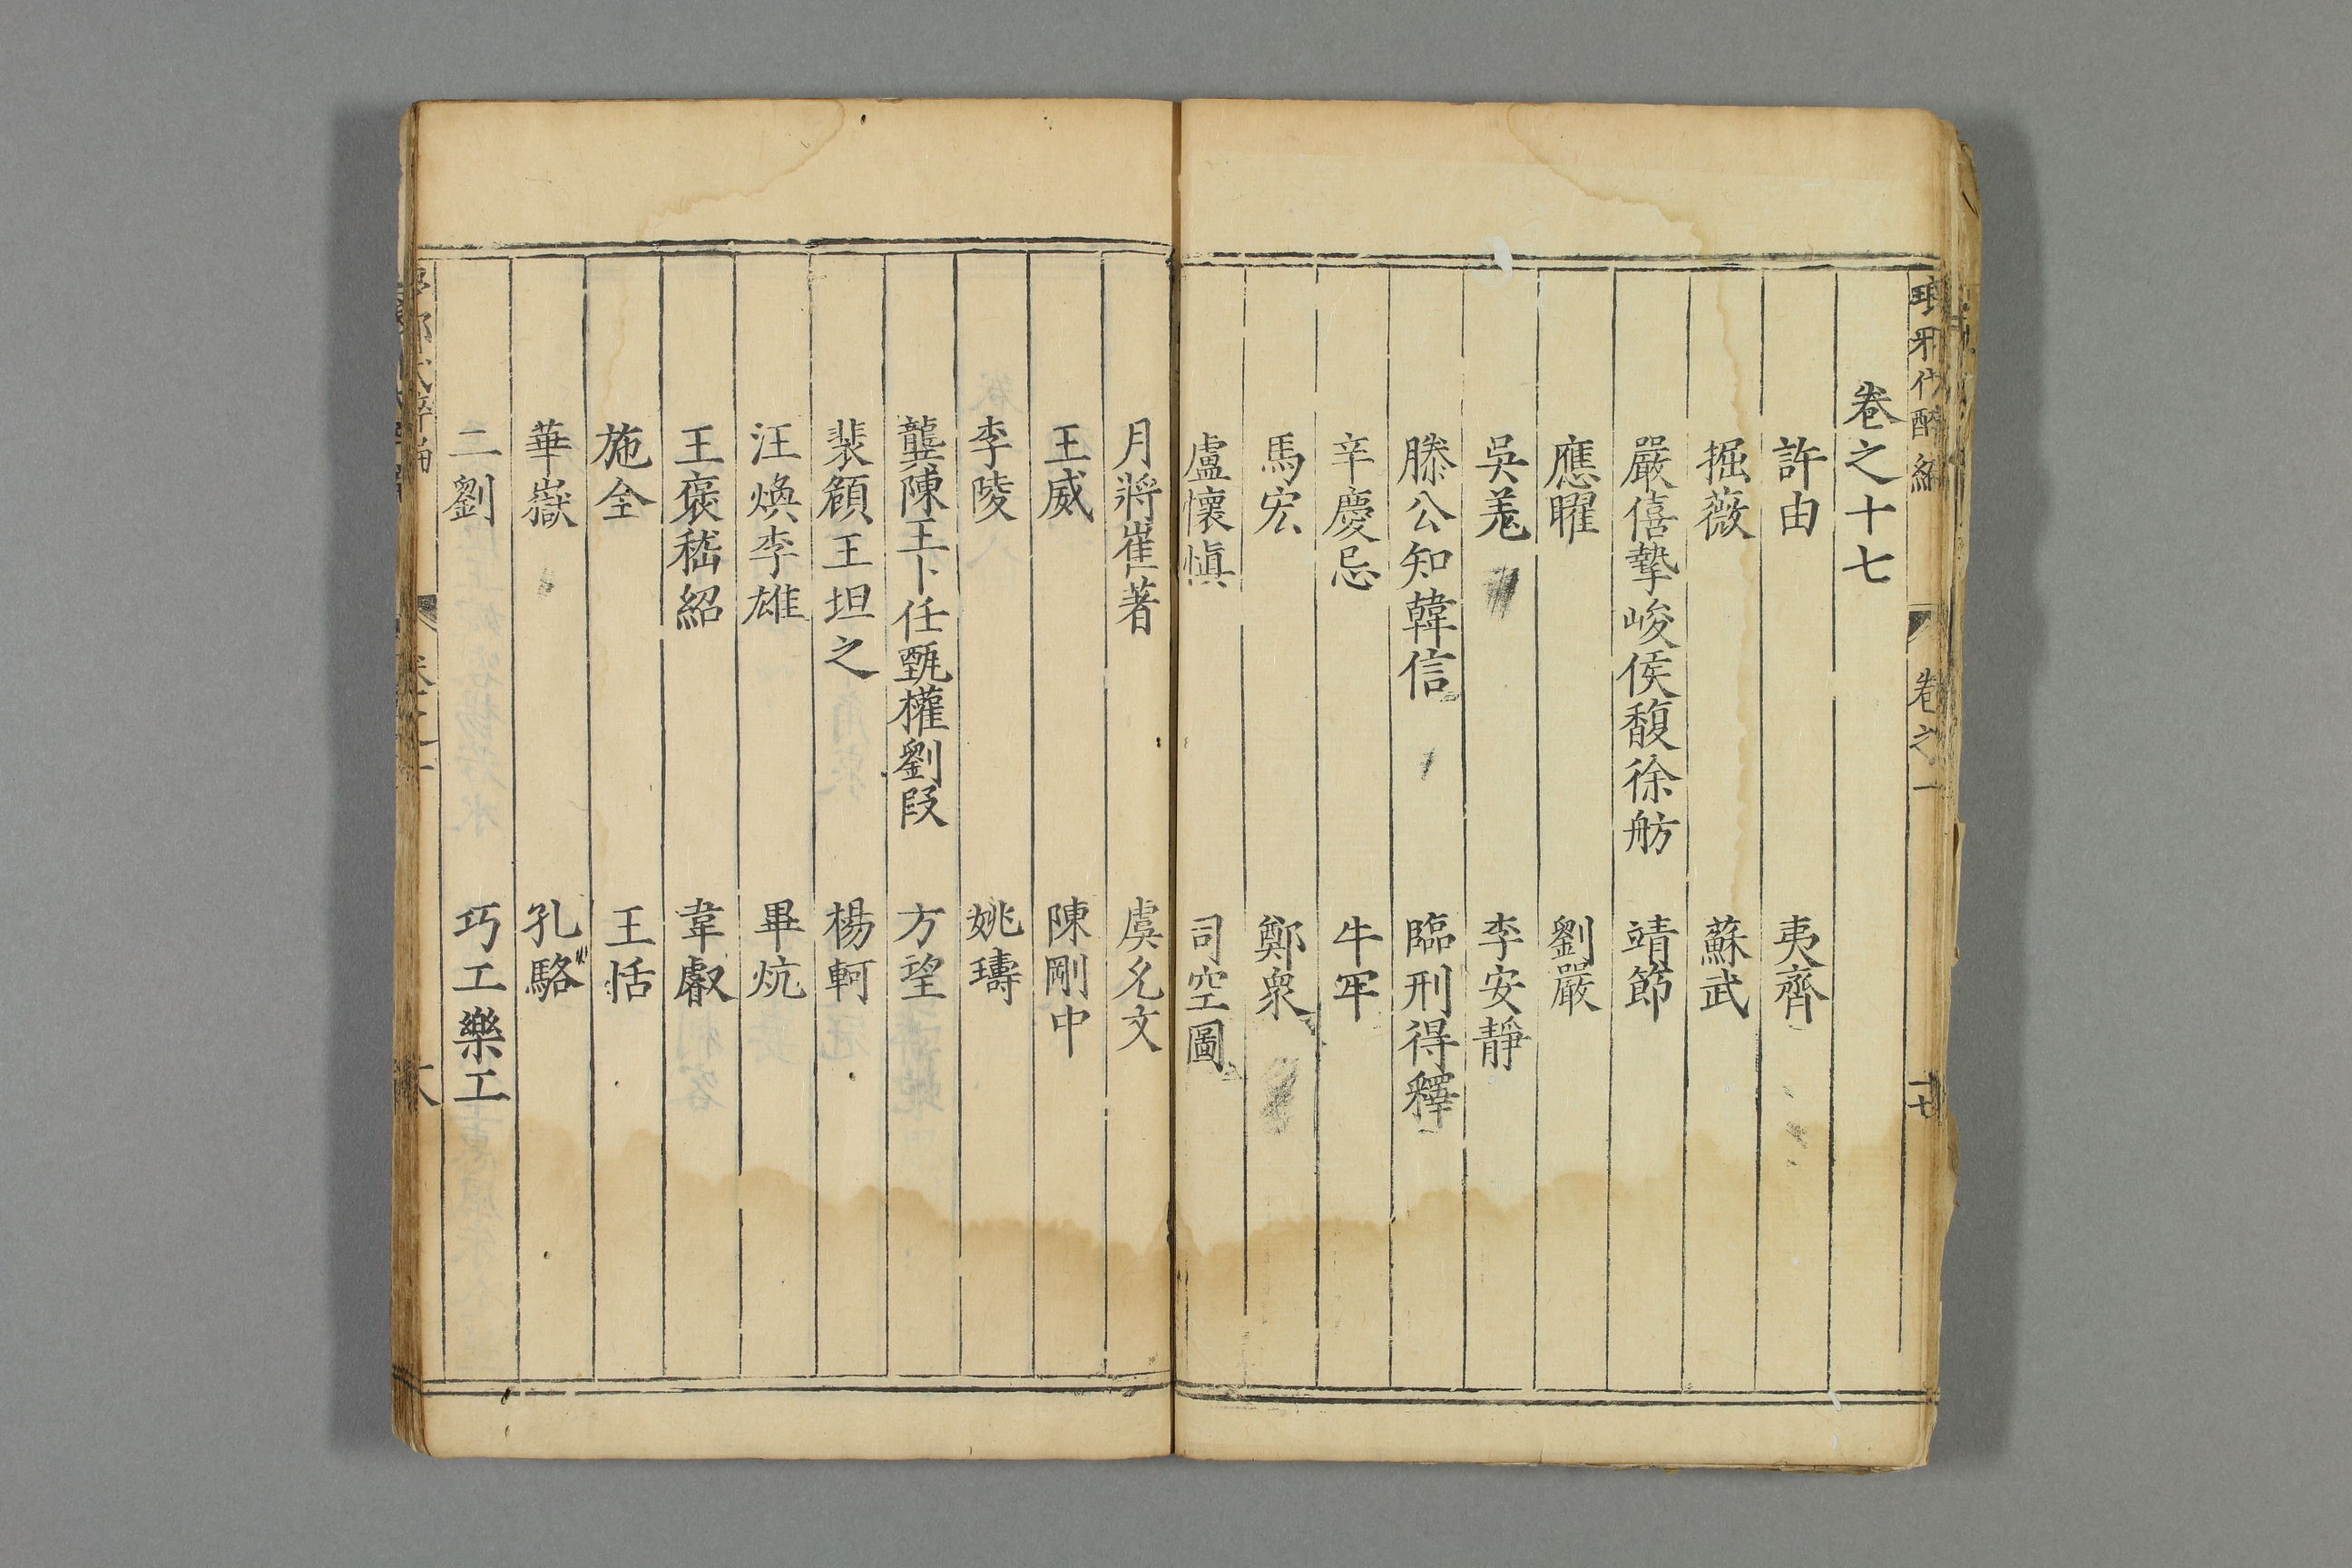 卷之十七
許由　夷齊
掘薇　蘇武
嚴僖摯峻侯馥徐舫　靖節
應曜　劉嚴
吳羗　李安靜
滕公知韓信　臨刑得釋
辛慶忌　牛牢
馬宏　鄭衆
盧懷愼　司空圖
月將崔著　虞允文
王威　陳剛中
李陵　姚璹
龔陳王卜任甄權劉段　方望
裴頠王坦之　楊軻
汪煥李雄　畢炕
王裒嵇紹　韋叡
施全　王恬
華嶽　孔駱
二劉　巧工樂工